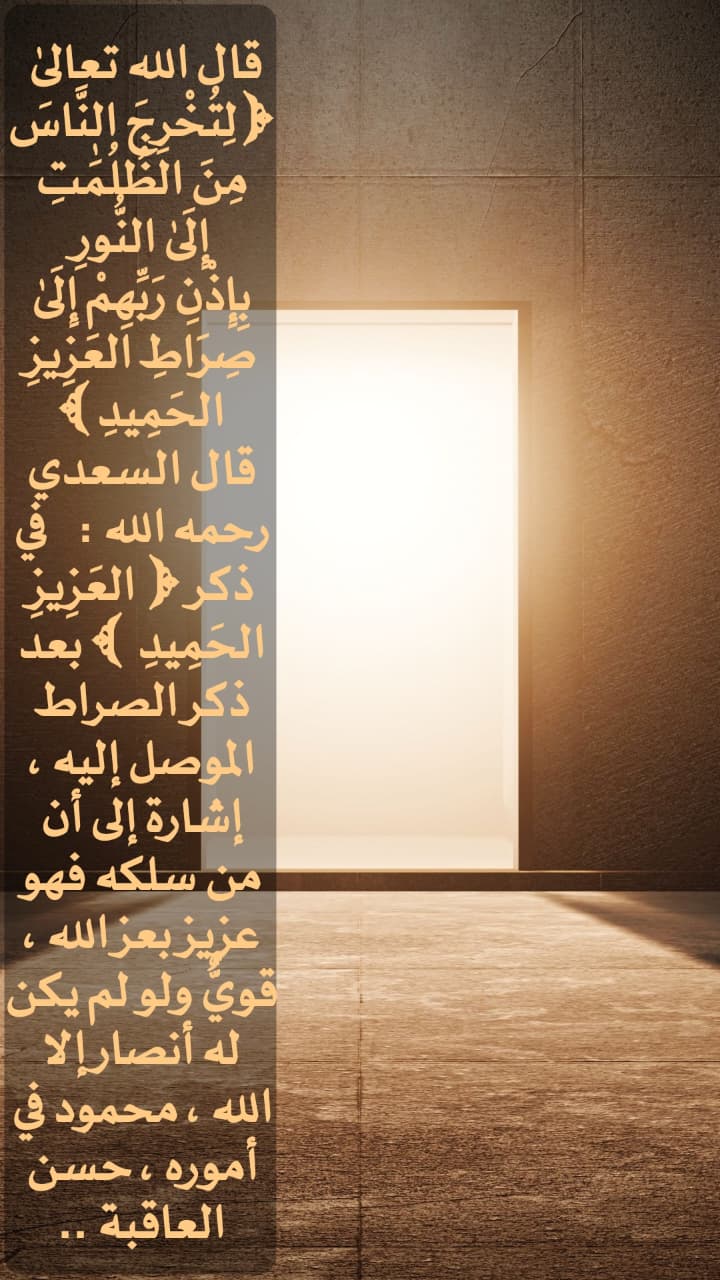 قال الله تعالىٰ
﴿لِتُخْرِجَ النَّاسَ
مِنَ الظُّلُمَٰتِ
إِلَىٰ النُّورِ
بِإِذْنِ رَبِّهِمْ إِلَىٰ
صِرَاطِ العَزِيزِ
الحَمِيدِ﴾
قال السعدي
رحمه الله : في
ذكر ﴿ العَزِيزِ
الحَمِيدِ ﴾ بعد
ذكر الصراط
الموصل إليه ،
إشارة إلى أن
من سلكه فهو
عزيز بعز الله ،
قويٌّ ولو لم يكن
له أنصار إلا
الله ، محمود في
أموره ، حسن
العاقبة ..